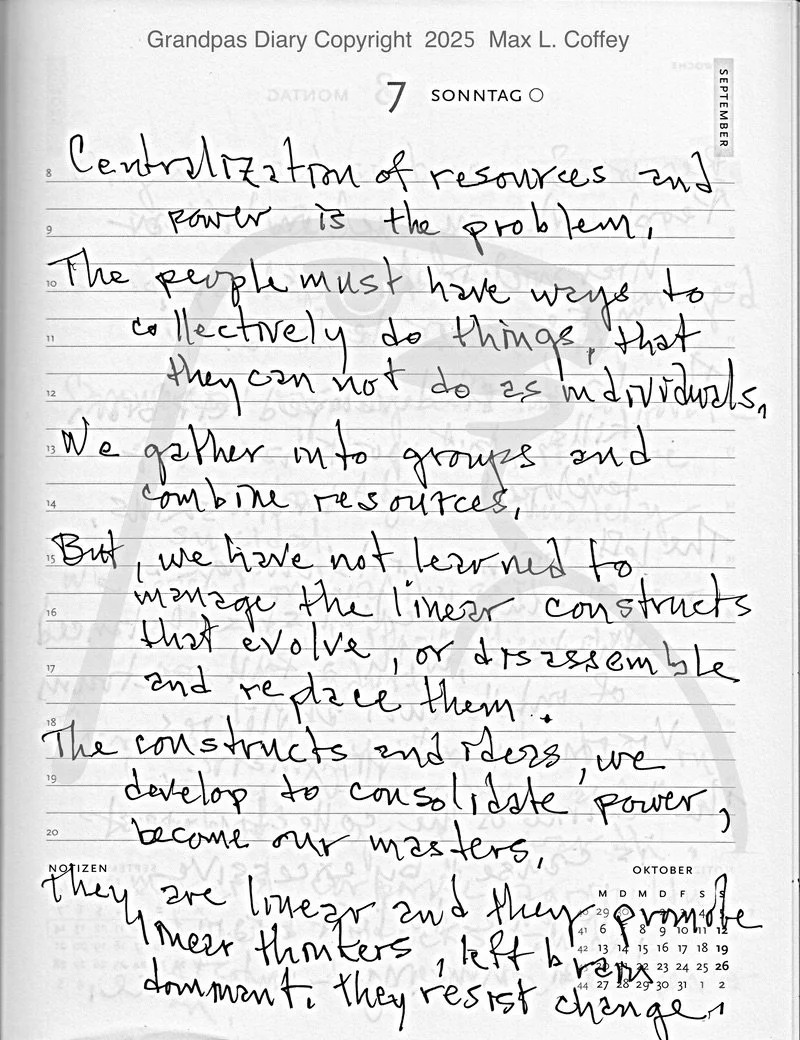 Grandpas Diary Copyright 2025 Max L. Coffey
7 SONNTAG
SEPTEMBER
8 Centralization of resources and
9 power is the problem.
10 The people must have ways to
11 collectively do things, that
12 they can not do as individuals,
13 We gather into groups and
14 combine resources,
15 But, we have not learned to
16 manage the linear constructs
that evolve, or disassemble
17 and replace them.
18 The constructs and ideas, we
19 develop to consolidate power,
20 become our masters,
NOTIZEN
OKTOBER
They are linear and they promote
linear thinkers, left brain
dominant. they resist change,
M D M D F S S
29
41 6 8 9 10 11 12
42 13 14 15 16 17 18 19
22 23 24 25 26
44 27 28 29 30 31 1 2